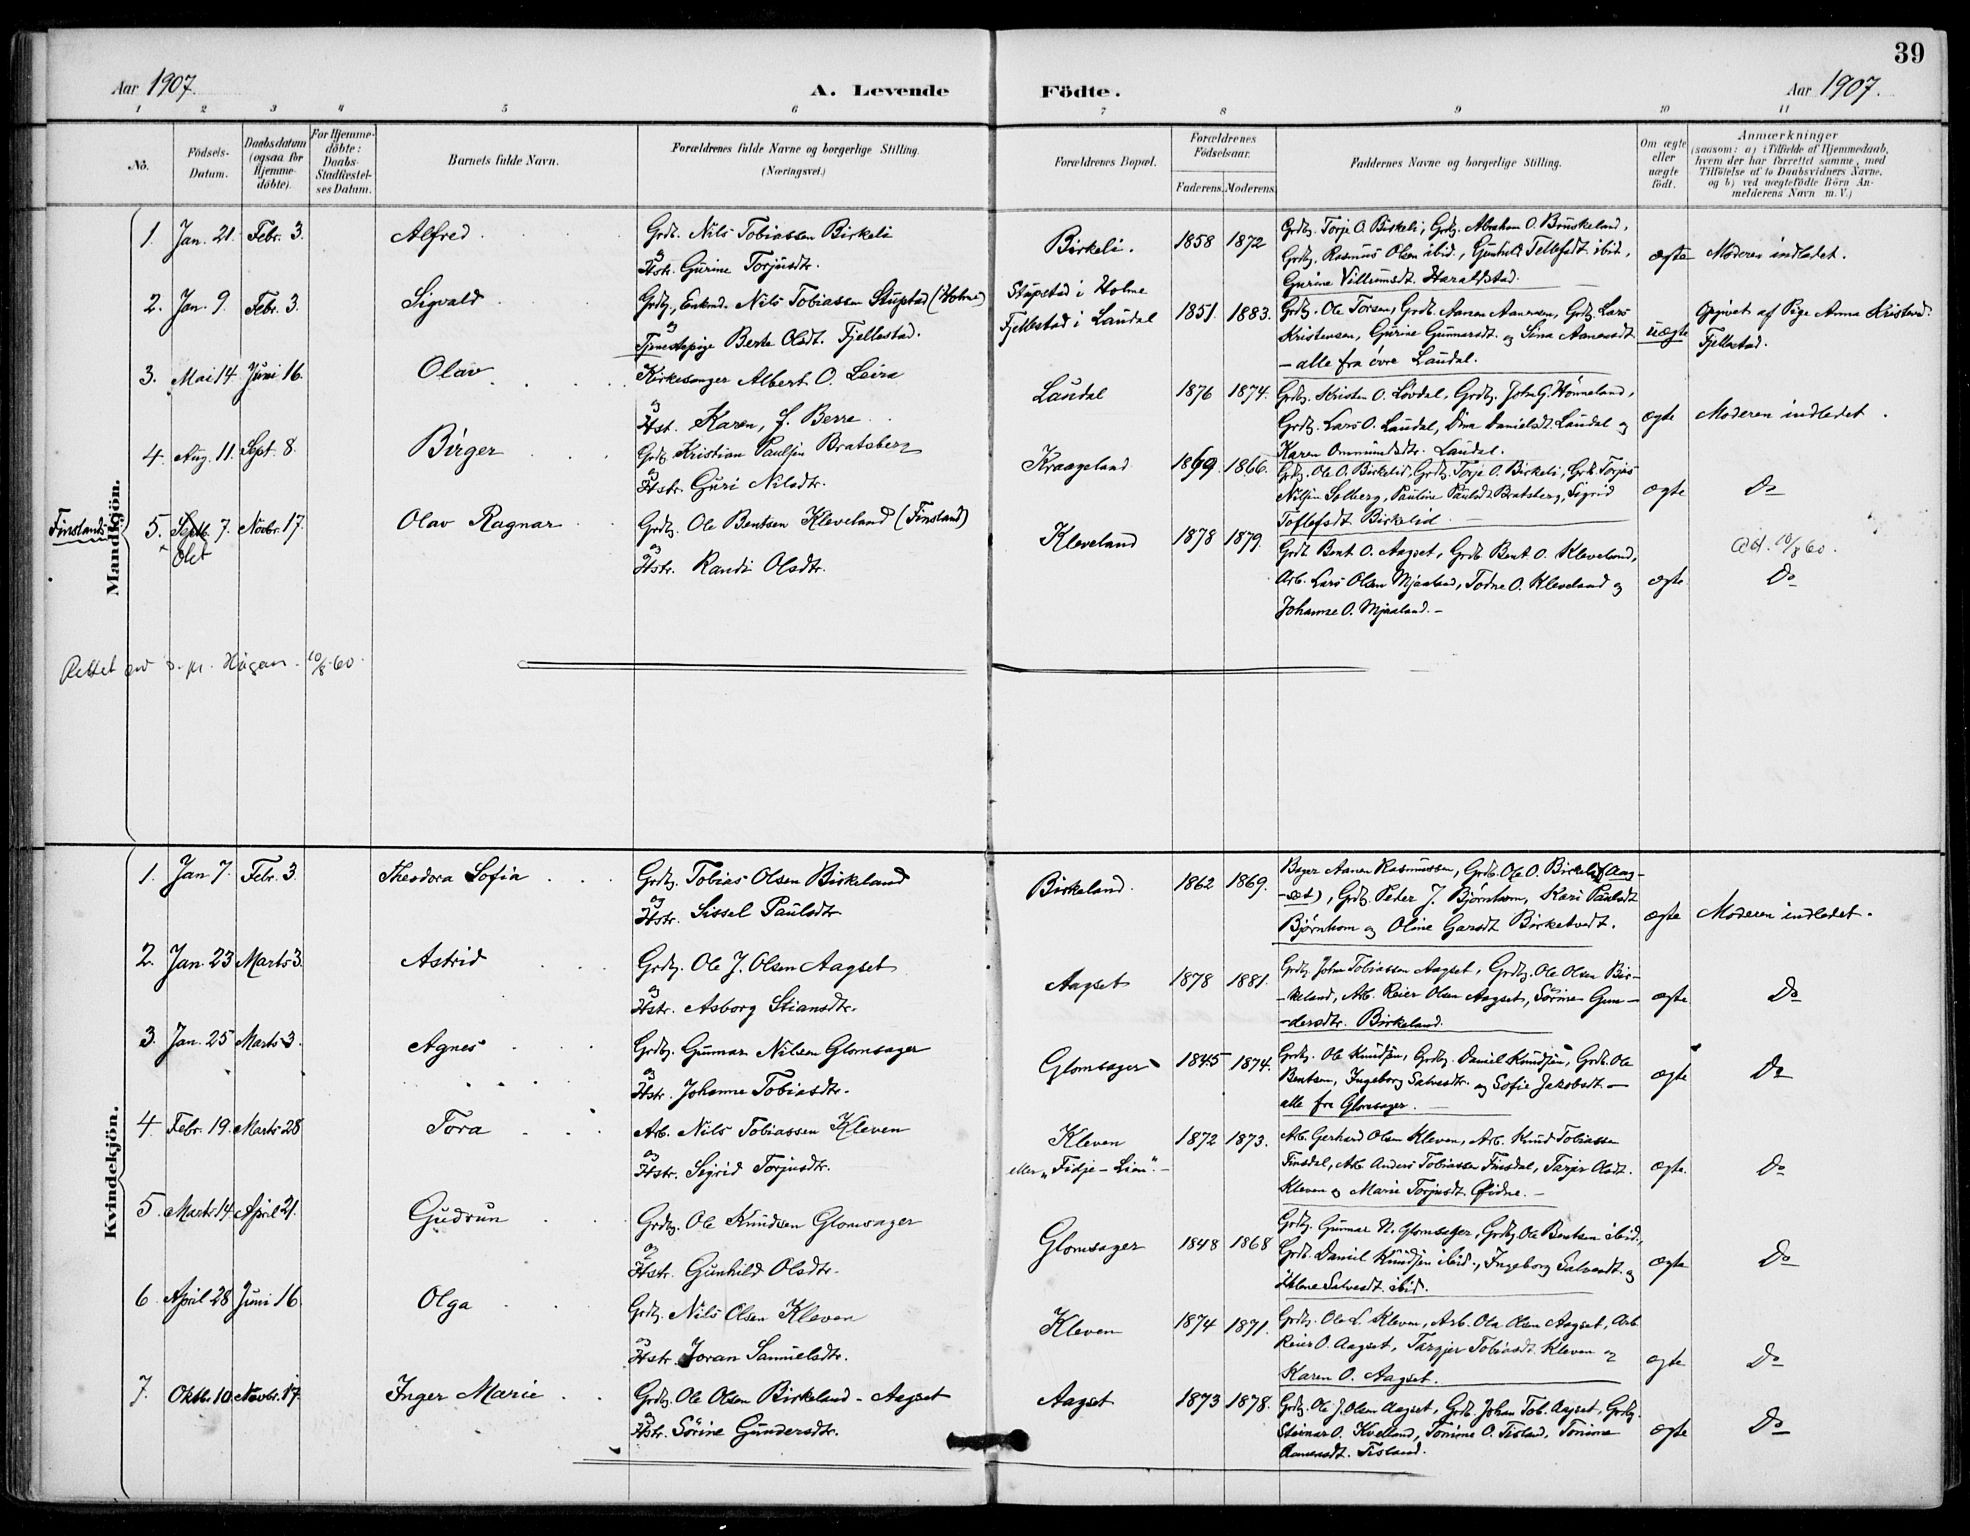 39
Aar 1907. A. Levende Födte. Aar 1907.
1 2 3 4 5 6 7 8 9 10 11
No.
Födsels-
Datum.
Daabsdatum
(ogsaa for
Hjemme-
döbte).
For Hjemme-
döbte:
Daabs-
Stadfæstel-
ses Datum.
Barnets fulde Navn.
Forældrenes fulde Navne og borgerlige Stilling.
(Næringsvei.)
Forældrenes Bopæl.
Forældrenes
Födselsaar.
Faderens. Moderens.
Faddernes Navne og borgerlige Stilling.
Om ægte
eller
uægte
født.
Anmærkninger
(saasom: a) i Tilfælde af Hjemmedaab,
hvem der har forrettet samme, med
Tilföielse af to Daabsvidners Navne,
og b) ved uægtefödte Börn An-
melderens Navn m. V.)
Mandkjön.
1. Jan. 21. Febr. 3. Alfred
Grdb. Nils Tobiassen Birkeli
og
Hstr. Gurine Torjusdtr.
Birkeli. 1858 1872
Grdbg. Torje O. Birkeli, Grdbg. Abraham O. Brunskeland,
Grdbg. Rasmus Olsen ibid., Gunhild Tellefsdt. ibid.,
Gurine Villumsdt. Haraldstad.
ægte Moderen indledet.
2. Jan. 9. Febr. 3. Sigvald
Grdbg., Enkmd. Nils Tobiassen Stupstad (Holme)
og
Tjenestepige Berte Olsdt. Fjellestad.
Stupstad i Holme
Fjellestad i Laudal
1851. 1883.
Grdbg. Ole Torsen, Grdb. Aanen Aanensen, Grdbg. Lars
Kristensen, Gurine Gunnarsdt. og Sina Aanensdt
- alle fra övre Laudal.
uægte
Opgivet af Pige Anna Kristensd.
Fjellestad.
3. Mai 14 Juni 16. Olav
Kirkesanger Albert O. Leira
og
Hst. Karen, f. Berre
Laudal 1876 1874.
Grdbg. Kristen O. Lövdal, Grdbg. John G. Hönneland,
Grdbg. Lars O. Laudal, Dina Danielsdt. Laudal og
Karen Ommundsdtr. Laudal.
ægte Moderen indledet.
4. Aug. 11. Sept. 8. Birger
Grdb. Kristian Paulsen Bratsberg
og
Hstr. Guri Nilsdtr.
Kraageland 1869. 1866.
Grdbg. Ole O. Birkelid, Grdbg. Torje O. Birkeli, Grdb. Torjus
Nilsen Solberg, Pauline Paulsdt. Bratsberg, Sigrid
Toflefsdt Birkelid.
ægte Do
Finsland
5. Septb. 7. Novbr. 17. Olav Ragnar
Okt
Grdbg. Ole Bentsen Kleveland (Finsland)
og
Hstr. Randi Olsdtr.
Kleveland 1878 1879.
Grdb. Bent O. Aagset, Grdb. Bent O. Kleveland,
Arb. Lars Olsen Mjaaland, Todne O. Kleveland og
Johanne O. Mjaaland. -
ægte
10/8 60.
Do
Rettet av s. pr. Haugan. 10/8-60.
Kvindekjön.
1. Jan 7. Febr. 3. Theodora Sofia
Grdbg. Tobias Olsen Birkeland
og
Hstr. Sissel Paulsdtr.
Birkeland. 1862 1869.
Bager Aanen Rasmussen, Grdb. Ole O. Birkeli (Aag-
-set), Grdbg. Peder J. Bjørnhom, Kari Paulsdt
Bjørnhom og Oline Garsdt Birketvedt.
ægte Moderen indledet.
2. Jan. 23 Marts 3. Astrid
Grdbg. Ole J. Olsen Aagset
og
Hstr. Asborg Stiansdtr.
Aagset 1878 1881.
Grdbg. John Tobiassen Aagset, Grdbg. Ole Olsen Bir-
-keland, Arb. Reier Olsen Aagset, Sörine Gun-
-dersdtr. Birkeland.
ægte Do
3. Jan. 25 Marts 3. Agnes
Grdbg. Gunnar Nilsen Glomsager
og
Hstr. Johanne Tobiasdtr.
Glomsager 1845 1874.
Grdbg. Ole Knudsen, Grdbg. Daniel Knudsen, Grdb. Ole
Bentsen, Ingeborg Salvesdtr. og Sofie Jakobsdt. -
alle fra Glomsager.
ægte Do
4. Febr. 19. Marts 28 Tora
Arb. Nils Tobiassen Kleven
og
Hstr. Sigrid Torjusdtr.
Kleven
eller "Fidje-Lien". -
1872 1873.
Arb. Gerhard Olsen Kleven, Arb. Knud Tobiassen
Finsdal, Arb. Anders Tobiassen Finsdal, Tarjer Olsdt.
Kleven og Marie Torjusdt. Øidne. -
ægte Do
5. Marts 14. April 21. Gudrun
Grdbg. Ole Knudsen Glomsager
og
Hstr. Gunhild Olsdtr.
Glomsager 1848 1868
Grdbg. Gunnar N. Glomsager, Grdbg. Ole Bentsen ibid.,
Grdb. Daniel Knudsen ibid., Ingeborg Salvesdt. og
Helene Salvesdt. ibid.
ægte Do
6. April 28 Juni 16. Olga
Grdbg. Nils Olsen Kleven
og
Hstr. Joran Samuelsdtr.
Kleven 1874 1871.
Grdbg. Ole L. Kleven, Arb. Ola Olsen Aagset, Arb.
Reier O. Aagset, Tarjer Tobiasdt. Kleven og
Karen O. Aagset.
ægte Do
7. Oktbr. 10. Novbr. 17. Inger Marie
Grdbg. Ole Olsen Birkeland - Aagset
og
Hstr. Sörine Gundersdtr.
Aagset 1873 1878.
Grdbg. Ole J. Olsen Aagset, Grdb. Johan Tob. Aagset, Grdbg.
Steinar O. Kvelland, Tomine O. Tisland, Tomine
Aanensdt. Tisland.
ægte Do